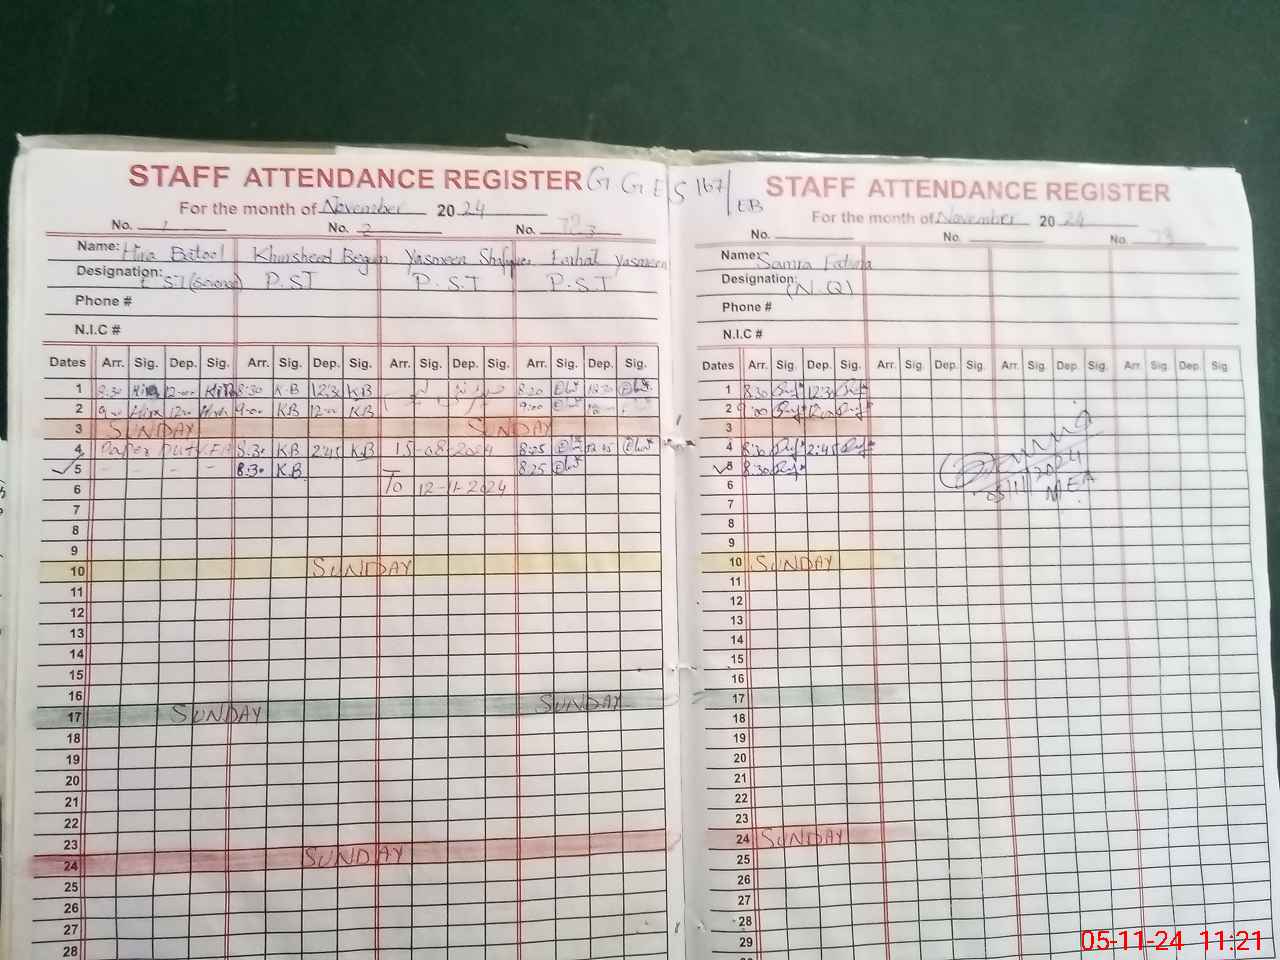 STAFF ATTENDANCE REGISTER GGES 167/EB
For the month of November 2024
No. 1 No. 2 No. 3
Name: Hira Batool Khursheed Begum Yasmeen Farhat Yasmeen
Designation: E.S.T (Science) P.S.T P.S.T P.S.T
Phone #
N.I.C #
Dates Arr. Sig. Dep. Sig. Arr. Sig. Dep. Sig. Arr. Sig. Dep. Sig. Arr. Sig. Dep. Sig.
1 8:30 Hira 12:00 Hira 8:30 K.B 12:30 KB 8:20
2 9:00 Hira 12:00 Hira 9:00 KB 12:00 KB 9:00
3 SUNDAY SUNDAY
4 Paper Duty 8:30 K.B 2:45 KB 15-08-2024 8:25
5 - - - - 8:30 K.B 8:25
6 To 12-11-2024
7
8
9
10 SUNDAY
11
12
13
14
15
16
17 SUNDAY SUNDAY
18
19
20
21
22
23
24 SUNDAY
25
26
27
28
STAFF ATTENDANCE REGISTER
For the month of November 2024
No. No. No.
Name: Samra Fatima
Designation: (N.Q)
Phone #
N.I.C #
Dates Arr. Sig. Dep. Sig. Arr. Sig. Dep. Sig. Arr. Sig. Dep. Sig. Arr. Sig. Dep. Sig.
1 8:30 12:30
2 9:00 12:00
3
4 8:30 2:45
5 8:30
05/11/2024
6 MEA
7
8
9
10 SUNDAY
11
12
13
14
15
16
17
18
19
20
21
22
23
24 SUNDAY
25
26
27
28
29
05-11-24 11:21